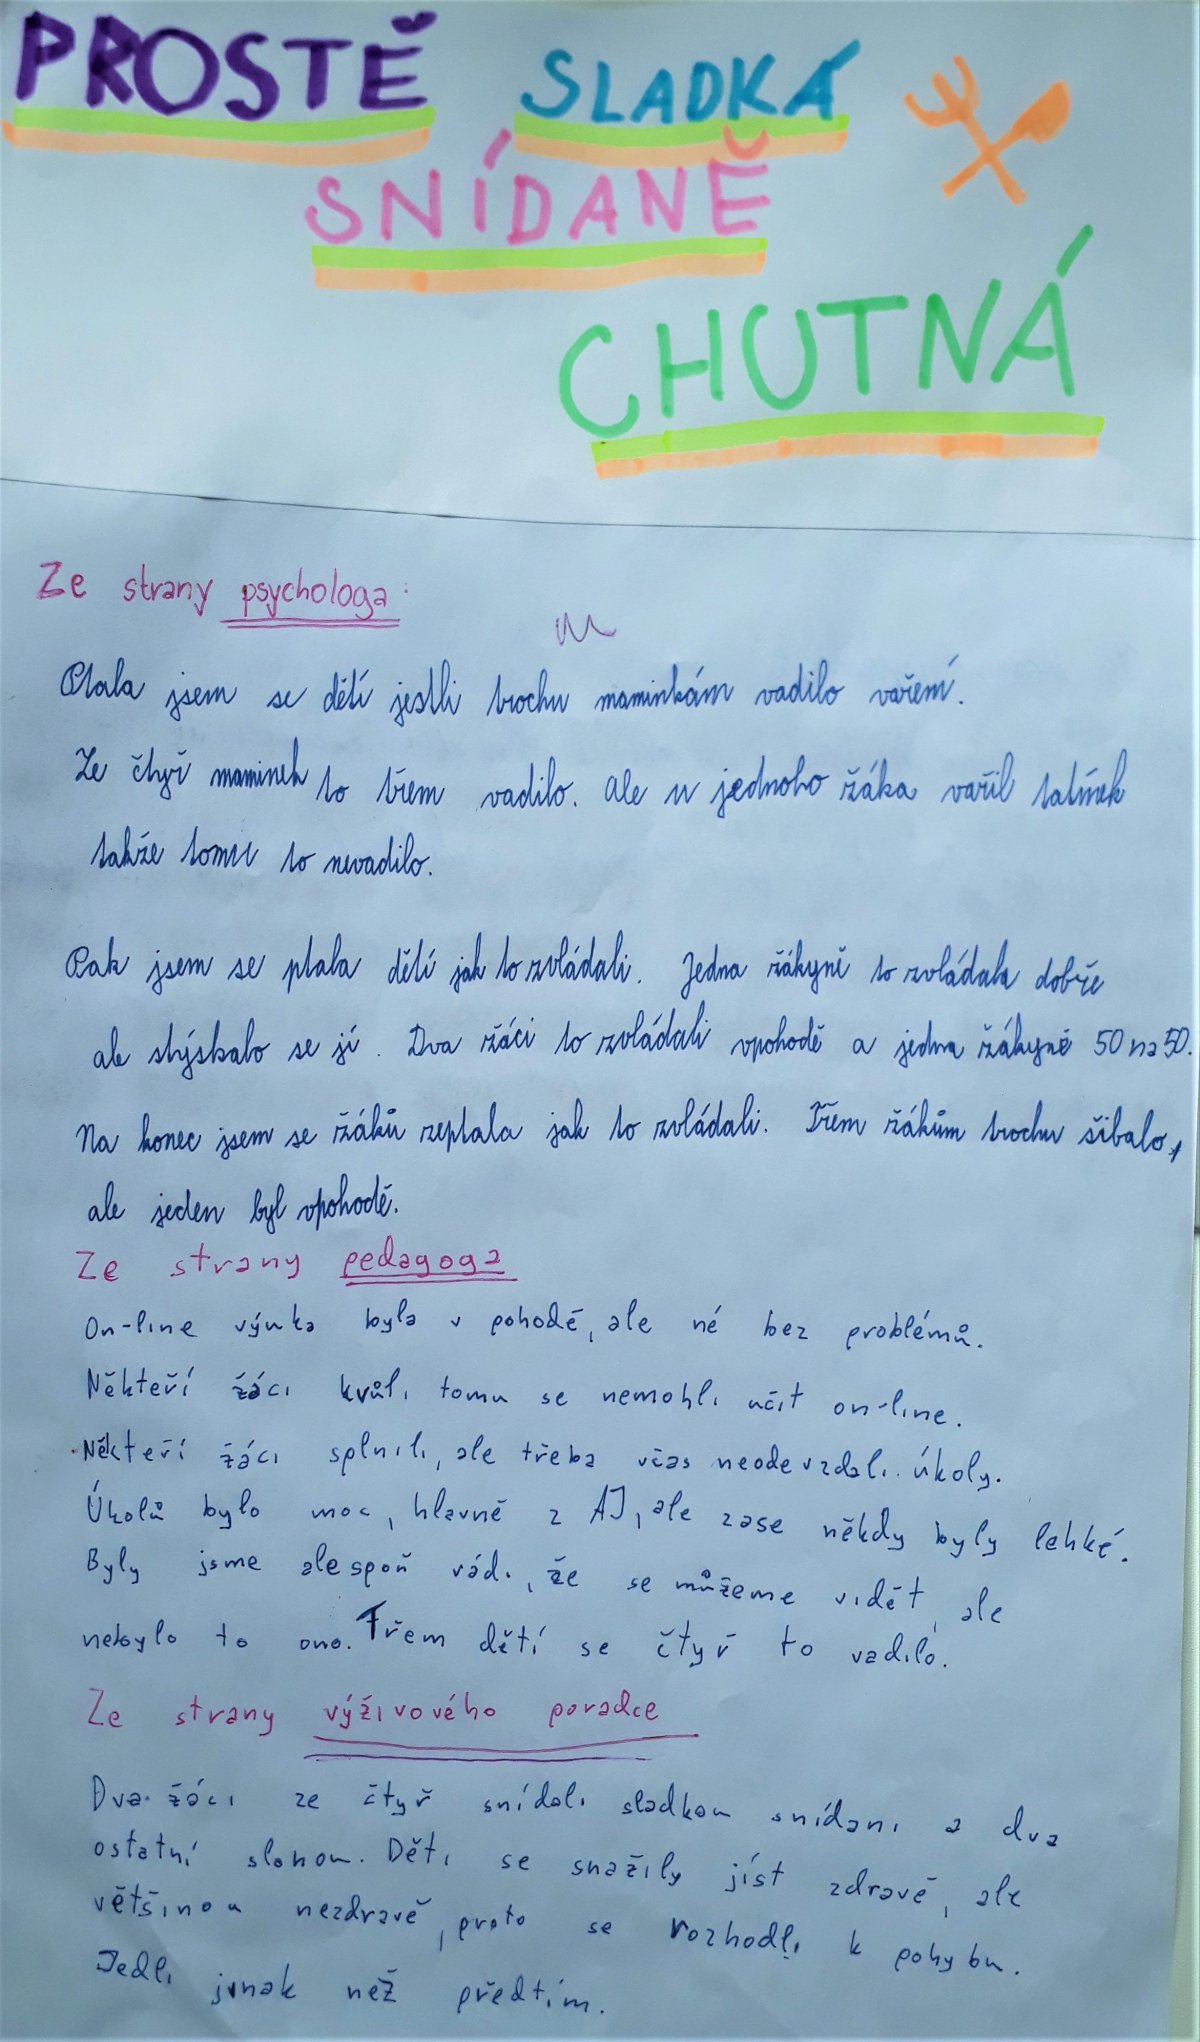 PROSTĚ SLADKÁ
SNÍDANĚ
CHUTNÁ
Ze strany psychologa:
Ptala jsem se dětí jestli trochu maminkám vadilo vaření.
Ze čtyř maminek to třem vadilo. Ale u jednoho žáka vařil tatínek
takže tomu to nevadilo.
Pak jsem se ptala dětí jak to zvládali. Jedna žákyně to zvládala dobře
ale stýskalo se jí. Dva žáci to zvládali vpohodě a jedna žákyně 50 na 50.
Na konec jsem se žáků zeptala jak to zvládali. Třem žákům trochu šibalo,
ale jeden byl vpohodě.
Ze strany pedagoga
On-line výuka byla v pohodě, ale né bez problémů.
Někteří žáci kvůli tomu se nemohli učit on-line.
Někteří žáci splnili, ale třeba včas neodevzdali úkoly.
Úkolů bylo moc, hlavně z AJ, ale zase někdy byly lehké.
Byly jsme alespoň rádi, že se můžeme vidět, ale
nebylo to ono. Třem dětí se čtyř to vadilo.
Ze strany výživového poradce
Dva žáci ze čtyř snídali sladkou snídani a dva
ostatní slanou. Děti se snažily jíst zdravě, ale
většinou nezdravě, proto se rozhodli k pohybu.
Jedli jinak než předtím.